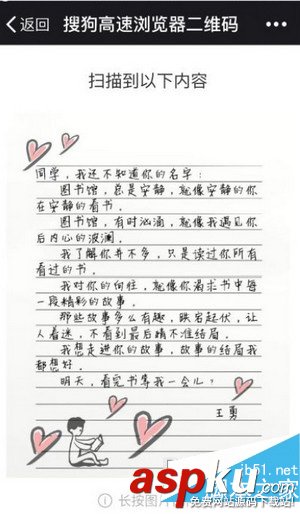 返回 搜狗高速浏览器二维码
扫描到以下内容
同学，我还不知道你的名字：
图书馆，总是安静，就像安静的你
在安静的看书。
图书馆，有时汹涌，就像我遇见你
后内心的波澜。
我了解你并不多，只是读过你所有
看过的书。
我对你的向往，就像你渴求书中每
一段精彩的故事。
那些故事多么有趣，跌宕起伏，让
人着迷，不看到最后瞎不准结局。
我想走进你的故事，故事的结局我
都想好。
明天，看完书等我一会儿？
王勇
jb51.net
长按图片
aspku.com
免费网站源码下载站!
之家